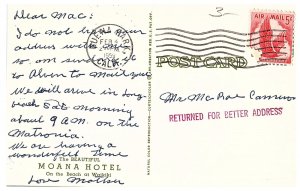 Dear Mac:
I do not have your
address with me
so am sending it
to Alvin to Mail you
We will arive in Long
beach Sat. morning
about 9 A.M. on the
Matsonia.
We are having a
wonderful time
Love Mother
The BEAUTIFUL
MOANA HOTEL
On the Beach at Waikiki
FEB
CALIF.
3
AIR MAIL 5¢
POST CARD
Mr McRae Cameron
RETURNED FOR BETTER ADDRESS